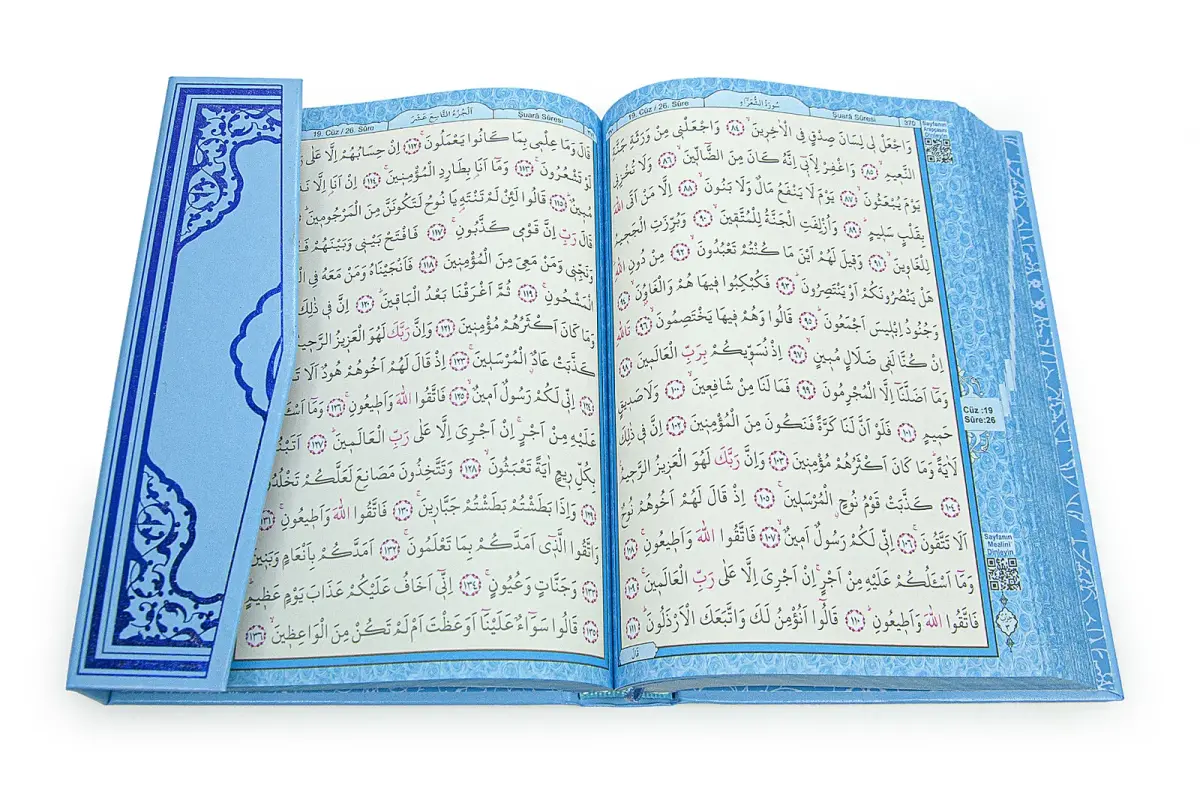 19. Cüz / 26. Sûre سُورَةُ الشُّعَرَاءِ Şuarâ Sûresi 370
وَاجْعَلْ لٖى لِسَانَ صِدْقٍ فِى الْاٰخِرٖينَۙ ﴿٨٤﴾ وَاجْعَلْنٖى مِنْ وَرَثَةِ جَنَّةِ
النَّعٖيمِۙ ﴿٨٥﴾ وَاغْفِرْ لِاَبٖٓى اِنَّهُ كَانَ مِنَ الضَّٓالّٖينَۙ ﴿٨٦﴾ وَلَا تُخْزِنٖى
يَوْمَ يُبْعَثُونَۙ ﴿٨٧﴾ يَوْمَ لَا يَنْفَعُ مَالٌ وَلَا بَنُونَۙ ﴿٨٨﴾ اِلَّا مَنْ اَتَى اللّٰهَ
بِقَلْبٍ سَلٖيمٍۜ ﴿٨٩﴾ وَاُزْلِفَتِ الْجَنَّةُ لِلْمُتَّقٖينَۙ ﴿٩٠﴾ وَبُرِّزَتِ الْجَحٖيمُ
لِلْغَاوٖينَۙ ﴿٩١﴾ وَقٖيلَ لَهُمْ اَيْنَ مَا كُنْتُمْ تَعْبُدُونَۙ ﴿٩٢﴾ مِنْ دُونِ اللّٰهِۜ
هَلْ يَنْصُرُونَكُمْ اَوْ يَنْتَصِرُونَۜ ﴿٩٣﴾ فَكُبْكِبُوا فٖيهَا هُمْ وَالْغَاوُ۫نَۙ ﴿٩٤﴾
وَجُنُودُ اِبْلٖيسَ اَجْمَعُونَۜ ﴿٩٥﴾ قَالُوا وَهُمْ فٖيهَا يَخْتَصِمُونَۙ ﴿٩٦﴾ تَاللّٰهِ
اِنْ كُنَّا لَفٖى ضَلَالٍ مُبٖينٍۙ ﴿٩٧﴾ اِذْ نُسَوّٖيكُمْ بِرَبِّ الْعَالَمٖينَ ﴿٩٨﴾
وَمَٓا اَضَلَّنَٓا اِلَّا الْمُجْرِمُونَ ﴿٩٩﴾ فَمَا لَنَا مِنْ شَافِعٖينَۙ ﴿١٠٠﴾ وَلَا صَدٖيقٍ
حَمٖيمٍ ﴿١٠١﴾ فَلَوْ اَنَّ لَنَا كَرَّةً فَنَكُونَ مِنَ الْمُؤْمِنٖينَ ﴿١٠٢﴾ اِنَّ فٖى ذٰلِكَ
لَاٰيَةًۜ وَمَا كَانَ اَكْثَرُهُمْ مُؤْمِنٖينَ ﴿١٠٣﴾ وَاِنَّ رَبَّكَ لَهُوَ الْعَزٖيزُ الرَّحٖيمُ
﴿١٠٤﴾ كَذَّبَتْ قَوْمُ نُوحٍۨ الْمُرْسَلٖينَۚ ﴿١٠٥﴾ اِذْ قَالَ لَهُمْ اَخُوهُمْ نُوحٌ
اَلَا تَتَّقُونَۚ ﴿١٠٦﴾ اِنّٖى لَكُمْ رَسُولٌ اَمٖينٌۙ ﴿١٠٧﴾ فَاتَّقُوا اللّٰهَ وَاَطٖيعُونِۚ ﴿١٠٨﴾
وَمَٓا اَسْـَٔلُكُمْ عَلَيْهِ مِنْ اَجْرٍۚ اِنْ اَجْرِىَ اِلَّا عَلٰى رَبِّ الْعَالَمٖينَۚ ﴿١٠٩﴾
فَاتَّقُوا اللّٰهَ وَاَطٖيعُونِۜ ﴿١١٠﴾ قَالُٓوا اَنُؤْمِنُ لَكَ وَاتَّبَعَكَ الْاَرْذَلُونَۜ ﴿١١١﴾
قَالَ
Sayfanın
Arapçasını
Dinleyin
Cüz :19
Sûre:26
Sayfanın
Mealini
Dinleyin
19. Cüz / 26. Sûre اَلْجُزْءُ التَّاسِعَ عَشَرَ Şuarâ Sûresi
قَالَ وَمَا عِلْمٖى بِمَا كَانُوا يَعْمَلُونَۚ ﴿١١٢﴾ اِنْ حِسَابُهُمْ اِلَّا عَلٰى
لَوْ تَشْعُرُونَۚ ﴿١١٣﴾ وَمَٓا اَنَا۬ بِطَارِدِ الْمُؤْمِنٖينَۚ ﴿١١٤﴾ اِنْ اَنَا۬ اِلَّا
مُبٖينٌۜ ﴿١١٥﴾ قَالُوا لَئِنْ لَمْ تَنْتَهِ يَا نُوحُ لَتَكُونَنَّ مِنَ الْمَرْجُومٖينَۜ
قَالَ رَبِّ اِنَّ قَوْمٖى كَذَّبُونِۚ ﴿١١٧﴾ فَافْتَحْ بَيْنٖى وَبَيْنَهُمْ
وَنَجِّنٖى وَمَنْ مَعِىَ مِنَ الْمُؤْمِنٖينَ ﴿١١٨﴾ فَاَنْجَيْنَاهُ وَمَنْ مَعَهُ فِى
الْمَشْحُونِۚ ﴿١١٩﴾ ثُمَّ اَغْرَقْنَا بَعْدُ الْبَاقٖينَۜ ﴿١٢٠﴾ اِنَّ فٖى ذٰلِكَ
وَمَا كَانَ اَكْثَرُهُمْ مُؤْمِنٖينَ ﴿١٢١﴾ وَاِنَّ رَبَّكَ لَهُوَ الْعَزٖيزُ
كَذَّبَتْ عَادٌۨ الْمُرْسَلٖينَۚ ﴿١٢٣﴾ اِذْ قَالَ لَهُمْ اَخُوهُمْ هُودٌ اَلَا
﴿١٢٤﴾ اِنّٖى لَكُمْ رَسُولٌ اَمٖينٌۙ ﴿١٢٥﴾ فَاتَّقُوا اللّٰهَ وَاَطٖيعُونِۚ ﴿١٢٦﴾ وَمَٓا
عَلَيْهِ مِنْ اَجْرٍۚ اِنْ اَجْرِىَ اِلَّا عَلٰى رَبِّ الْعَالَمٖينَۜ ﴿١٢٧﴾
بِكُلِّ رٖيعٍ اٰيَةً تَعْبَثُونَۙ ﴿١٢٨﴾ وَتَتَّخِذُونَ مَصَانِعَ لَعَلَّكُمْ تَخْلُدُونَۚ
﴿١٢٩﴾ وَاِذَا بَطَشْتُمْ بَطَشْتُمْ جَبَّارٖينَۚ ﴿١٣٠﴾ فَاتَّقُوا اللّٰهَ وَاَطٖيعُونِۚ ﴿١٣١﴾
وَاتَّقُوا الَّذٖٓى اَمَدَّكُمْ بِمَا تَعْلَمُونَۚ ﴿١٣٢﴾ اَمَدَّكُمْ بِاَنْعَامٍ وَبَنٖينَۚ
﴿١٣٣﴾ وَجَنَّاتٍ وَعُيُونٍۚ ﴿١٣٤﴾ اِنّٖٓى اَخَافُ عَلَيْكُمْ عَذَابَ يَوْمٍ عَظٖيمٍۜ
﴿١٣٥﴾ قَالُوا سَوَٓاءٌ عَلَيْنَٓا اَوَعَظْتَ اَمْ لَمْ تَكُنْ مِنَ الْوَاعِظٖينَۙ ﴿١٣٦﴾